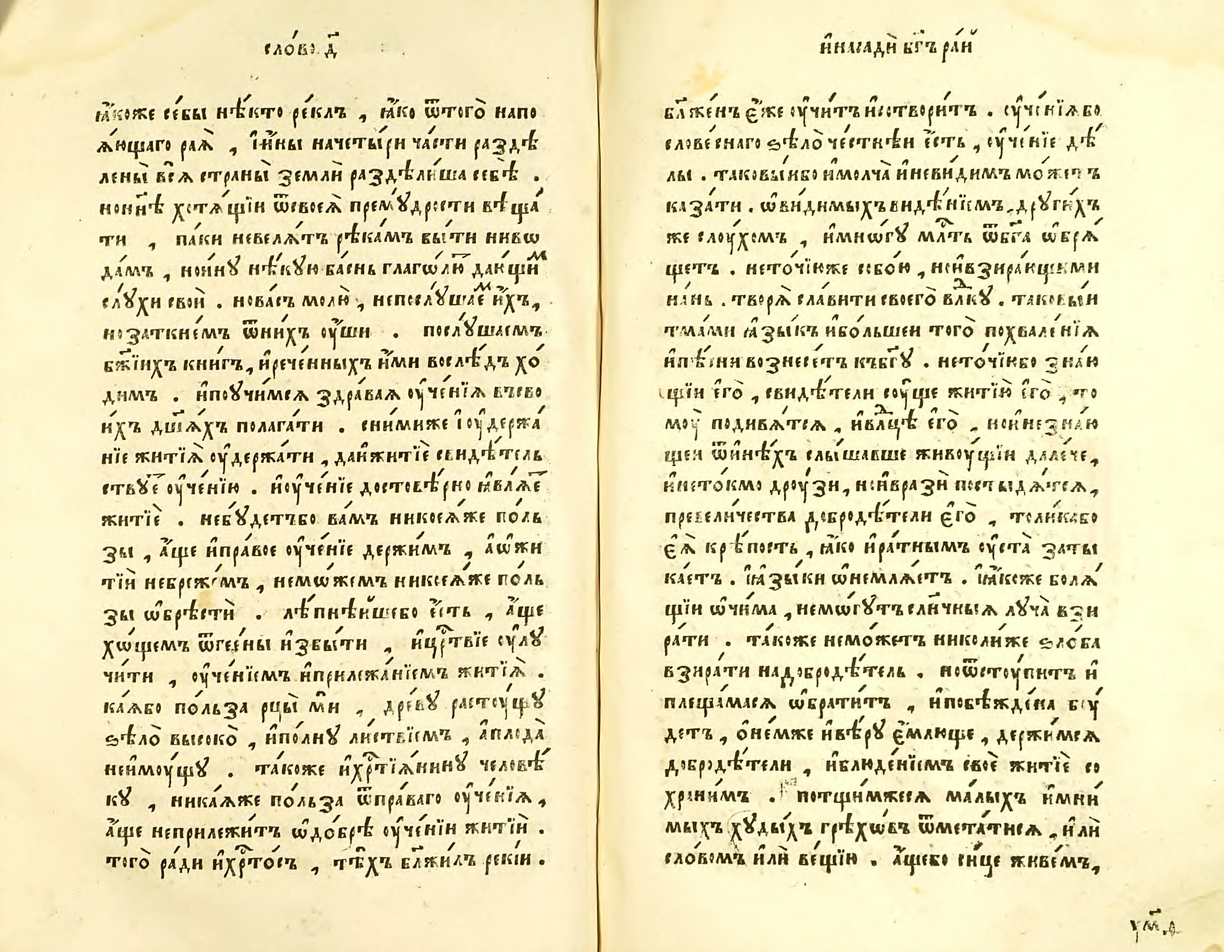 сло́во д҃
ꙗ҆́коже се́бы нѣ́кто ре́клъ , ꙗ҆́ко ѿтого̀ напо
ѧ́ющаго раѧ̀ , і҆и҆́ны начеты́ри ча́сти раздѣ
лены̀ всѧ̀ страны̀ землѝ раздѣли́ша себѣ̀ .
нонн҃ѣ хотѧ́щїи ѿсвоеѧ̀ премꙋ́дрости вѣща́
ти , па́ки невелѧ́тъ рѣка́мъ бы́ти нивѡ
да́мъ , ноинꙋ̀ нѣ́кꙋю ба́снь глаго́лю҃ даю́щим
слꙋ́хи своѝ . нова́съ молю̀ , непослꙋ́шаем и҆́хъ ,
нозаткне́мъ ѿни́хъ оу҆́ши . послꙋ́шаемъ
бж҃їихъ кни́гъ , и҆рече́нныхъ и҆́ми вослѣ́дъ хо́
димъ . и҆поучи́мсѧ здра́ваѧ оу҆че́нїѧ въсво
и́хъ дш҃а́хъ полага́ти . сни́миже і҆оу҆держа́
нїе житїѧ̀ оу҆держа́ти , даи҆житїѐ свидѣ́тель
ствꙋ́е҃ оу҆че́нїю . и҆оу҆че́нїе достовѣ́рно ꙗ҆влѧ́е҃
житїѐ . небꙋ́детъбо ва́мъ никоеѧ́же по́ль
зы , а҆́ще и҆пра́вое оу҆че́нїе держи́мъ , а҆ѡ҆жи
тїѝ небреже́мъ , немо́жемъ никоеѧ́же по́ль
зы ѡ҆брѣстѝ . лѣ́пнѣйшебо є҆́сть , а҆́ще
хо́щемъ ѿгее́ны и҆збы́ти , и҆црⷭ҇твїе сꙋлꙋ
чи́ти , оу҆че́нїемъ и҆прилежа́нїемъ житїѧ̀ .
ка́ѧбо по́льза рцы́ ми , дре́вꙋ расту́щꙋ
ѕѣло̀ высоко̀ , и҆по́лнꙋ ли́ствїемъ , а҆плода̀
неимꙋ́щꙋ . та́коже и҆хрⷭ҇тїѧ́нинꙋ человѣ́
кꙋ , ника́ѧже по́льза ѿпра́ваго оу҆че́нїѧ ,
а҆́ще неприлежи́тъ ѡ҆до́брѣ оу҆че́нїи житїѝ .
того̀ ра́ди и҆хрⷭ҇то́съ , тѣ́хъ блжи́лъ реکі́и .
и҆насадѝ бг҃ъ ра́й
блаже́нъ є҆́же оу҆чи́тъ и҆створи́тъ . оу҆че́нїѧбо
слове́снаго ѕѣло̀ честнѣ́и є҆́сть , оу҆че́нїе дѣ́
лы . таковы́ибо и҆молча̀ и҆неви́димъ мо́жетъ
каза́ти . ѡ҆ви́димыхъ ви́дѣнїемъ , други́хъ
же слоу́хомъ , и҆мно́гꙋ млⷭ҇ть ѿбг҃а ѡ҆брѧ́
щетъ . неточі́юже собо́ю , нои҆взира́ющими
на́нь . творѧ̀ сла́вити своего̀ вдⷣкꙋ . таковы́и
тма́ми ꙗ҆зы́къ и҆бо́льшеи того̀ похвале́нїѧ
и҆пѣ́сни вознесе́тъ къбг҃ꙋ . неточі́ибо зна́ю
щїи є҆го̀ , свидѣ́тели соу́ще житїю̀ є҆го̀ , то
моу̀ подивѧ́тсѧ , и҆влⷣцѣ є҆го̀ , нои҆незна́ю
щеи ѿи҆нѣ́хъ слы́шавше живоу́щїи дале́че ,
и҆нето́кмо дроу́зи , нои҆вразѝ постыдѧ́тсѧ ,
превели́чества добродѣ́тели є҆го̀ , толи́кабо
є҆ѧ̀ крѣ́пость , ꙗ҆́ко и҆ра́тнымъ оу҆ста̀ заты
ка́етъ . і҆ꙗ҆зы́ки ѡ҆немлѧ́етъ . ꙗ҆́коже болѧ́
щїи ѡ҆чи́ма , немо́гутъ сл҃нчныѧ луча̀ взи
ра́ти . та́коже немо́жетъ николи́же ѕло́ба
взира́ти надобродѣ́тель . ноѿсту́питъ и҆
плеща́масѧ ѡ҆брати́тъ , и҆побѣжде́на бꙋ́
детъ , о҆не́мже и҆вѣ́рꙋ є҆́млюще , держи́мсѧ
добродѣ́тели , и҆блюде́нїемъ своѐ житїѐ со
храни́мъ . потщи́мжесѧ ма́лыхъ и҆мни́
мыхъ худы́хъ грѣхо́въ ѿмета́тисѧ , и҆лѝ
сло́вомъ и҆лѝ ве́щїю . а҆́щебо си́це живе́мъ ,